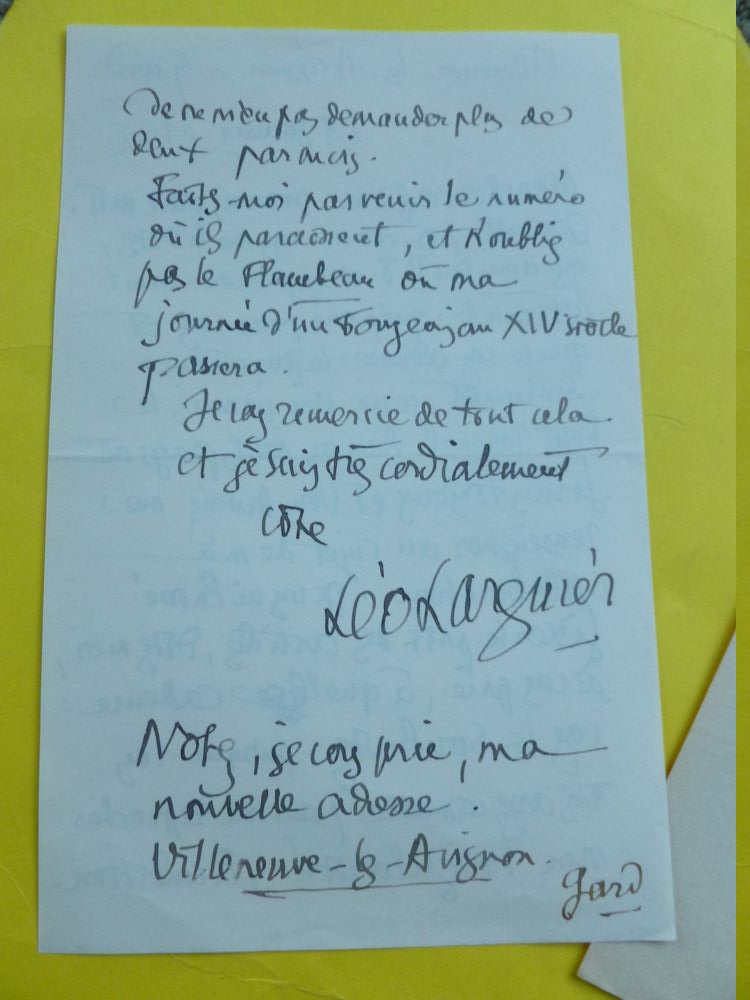 Je ne m'en pas demander plus de
deux par mois.
Faites-moi parvenir le numéro
où ils paraissent, et n'oubliez
pas le Flambeau où ma
journée d'un bourgeois au XIV siècle
passera.
Je vous remercie de tout cela
et je suis très cordialement
vôtre
Léo Larguier
Notez, je vous prie, ma
nouvelle adresse.
Villeneuve-lez-Avignon.
Gard